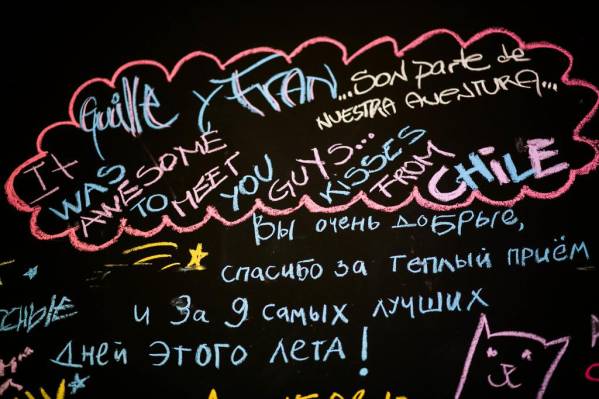 Guille y FRAN...SON parte de
NUESTRA AVENTURA...
It WAS AWESOME TO MEET YOU GUYS... KISSES FROM CHILE
Вы очень добрые,
спасибо за теплый приём
и за 9 самых лучших
дней этого лета!